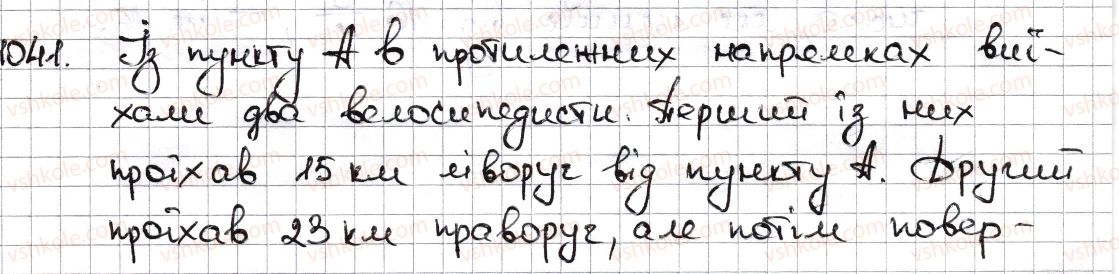 1041. Із пункту А в протилежних напрямках виї-
хали два велосипедисти. Перший із них
проїхав 15 км ліворуч від пункту А. Другий
проїхав 23 км праворуч, але потім повер-